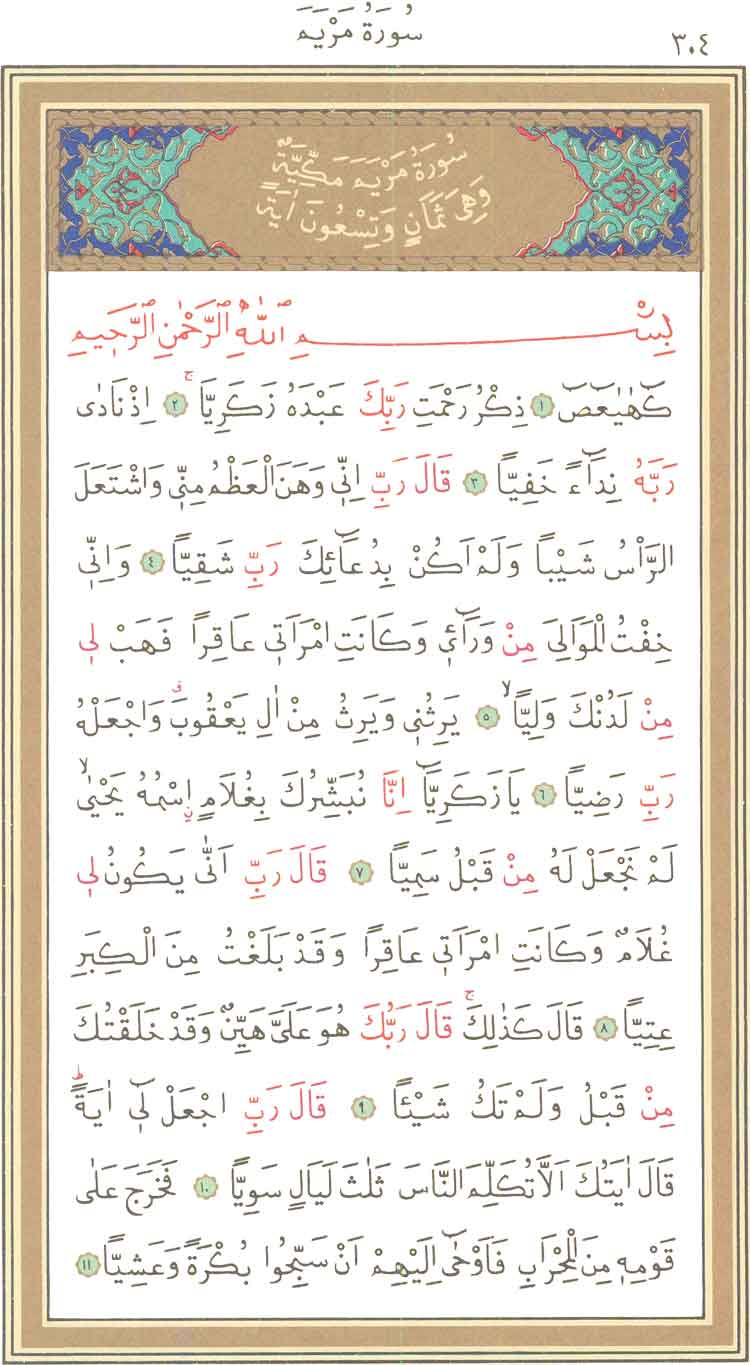 سُورَةُ مَرْيَمَ
٣٠٤
سُورَةُ مَرْيَمَ مَكِّيَّةٌ
وَهِيَ ثَمَانٍ وَتِسْعُونَ اٰيَةً
بِسْمِ اللّٰهِ الرَّحْمٰنِ الرَّحٖيمِ
كٓهٰيٰعٓصٓ ﴿١﴾ ذِكْرُ رَحْمَتِ رَبِّكَ عَبْدَهُ زَكَرِيَّاۚ ﴿٢﴾ اِذْ نَادٰى
رَبَّهُ نِدَٓاءً خَفِيًّا ﴿٣﴾ قَالَ رَبِّ اِنّٖي وَهَنَ الْعَظْمُ مِنّٖي وَاشْتَعَلَ
الرَّاْسُ شَيْبًا وَلَمْ اَكُنْ بِدُعَٓائِكَ رَبِّ شَقِيًّا ﴿٤﴾ وَاِنّٖي
خِفْتُ الْمَوَالِيَ مِنْ وَرَٓاءٖي وَكَانَتِ امْرَاَتٖي عَاقِرًا فَهَبْ لٖي
مِنْ لَدُنْكَ وَلِيًّاۙ ﴿٥﴾ يَرِثُنٖي وَيَرِثُ مِنْ اٰلِ يَعْقُوبَࣗ وَاجْعَلْهُ
رَبِّ رَضِيًّا ﴿٦﴾ يَا زَكَرِيَّٓا اِنَّا نُبَشِّرُكَ بِغُلَامٍۨ اسْمُهُ يَحْيٰىۙ
لَمْ نَجْعَلْ لَهُ مِنْ قَبْلُ سَمِيًّا ﴿٧﴾ قَالَ رَبِّ اَنّٰى يَكُونُ لٖي
غُلَامٌ وَكَانَتِ امْرَاَتٖي عَاقِرًا وَقَدْ بَلَغْتُ مِنَ الْكِبَرِ
عِتِيًّا ﴿٨﴾ قَالَ كَذٰلِكَۚ قَالَ رَبُّكَ هُوَ عَلَيَّ هَيِّنٌ وَقَدْ خَلَقْتُكَ
مِنْ قَبْلُ وَلَمْ تَكُ شَيْئًا ﴿٩﴾ قَالَ رَبِّ اجْعَلْ لٖٓي اٰيَةًؕ
قَالَ اٰيَتُكَ اَلَّا تُكَلِّمَ النَّاسَ ثَلٰثَ لَيَالٍ سَوِيًّا ﴿١٠﴾ فَخَرَجَ عَلٰى
قَوْمِهٖ مِنَ الْمِحْرَابِ فَاَوْحٰٓى اِلَيْهِمْ اَنْ سَبِّحُوا بُكْرَةً وَعَشِيًّا ﴿١١﴾